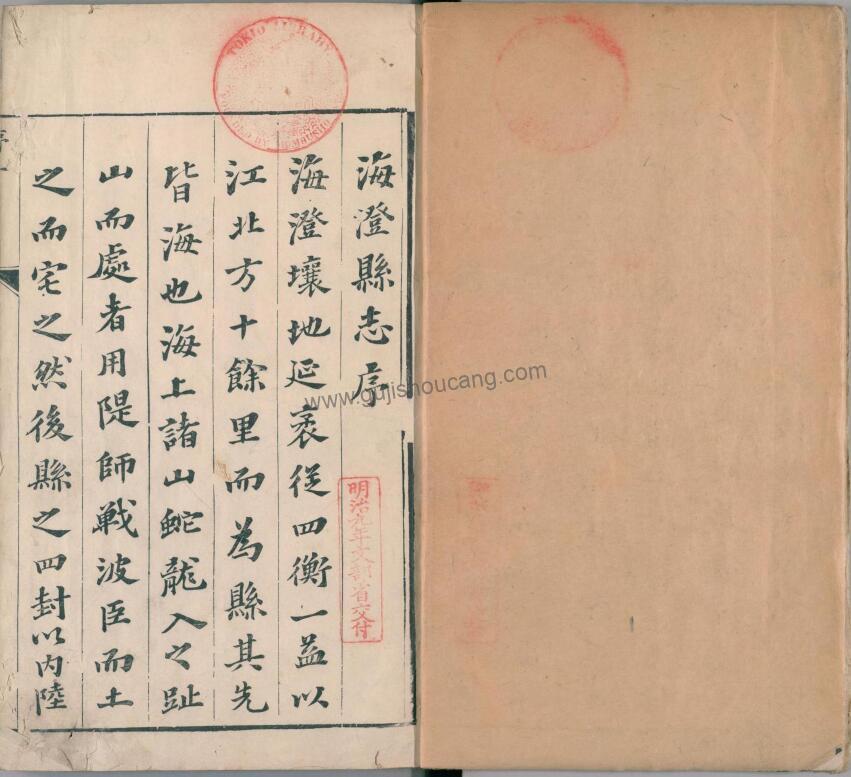 海澄縣志序
海澄壤地延袤從四衡一益以
江北方十餘里而為縣其先
皆海也海上諸山蛇龍入之趾
山而處者用隄師戰波臣而土
之而宅之然後縣之四封以內陸
明治九年文部省交付
TOKIO LIBRARY
www.gujishoucang.com